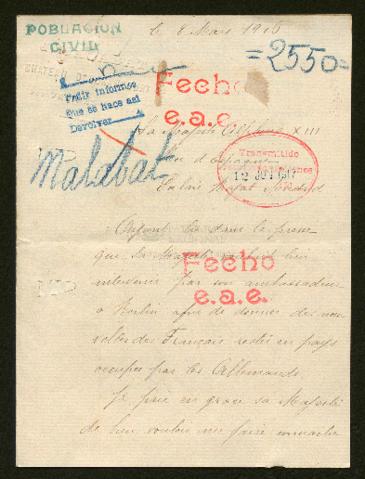 POBLACION
CIVIL
le 8 Mars 1916
=2550=
CHATEAU DE
Pedir informes
que se hace asi
Devolver
Fecho
e.a.e.
Sa Majesté Alphonse XIII
Roi d'Espagne
Palais Royal Madrid
Transmitido
12 JUN 1917
Malabat
Ayant lu dans la presse
que Sa Majesté voulait bien
intervenir par son ambassadeur
à Berlin afin de donner des nou-
velles des Français restés en pays
occupés par les Allemands
Fecho
e.a.e.
Je prie en grace sa Majesté
de bien vouloir me faire connaître